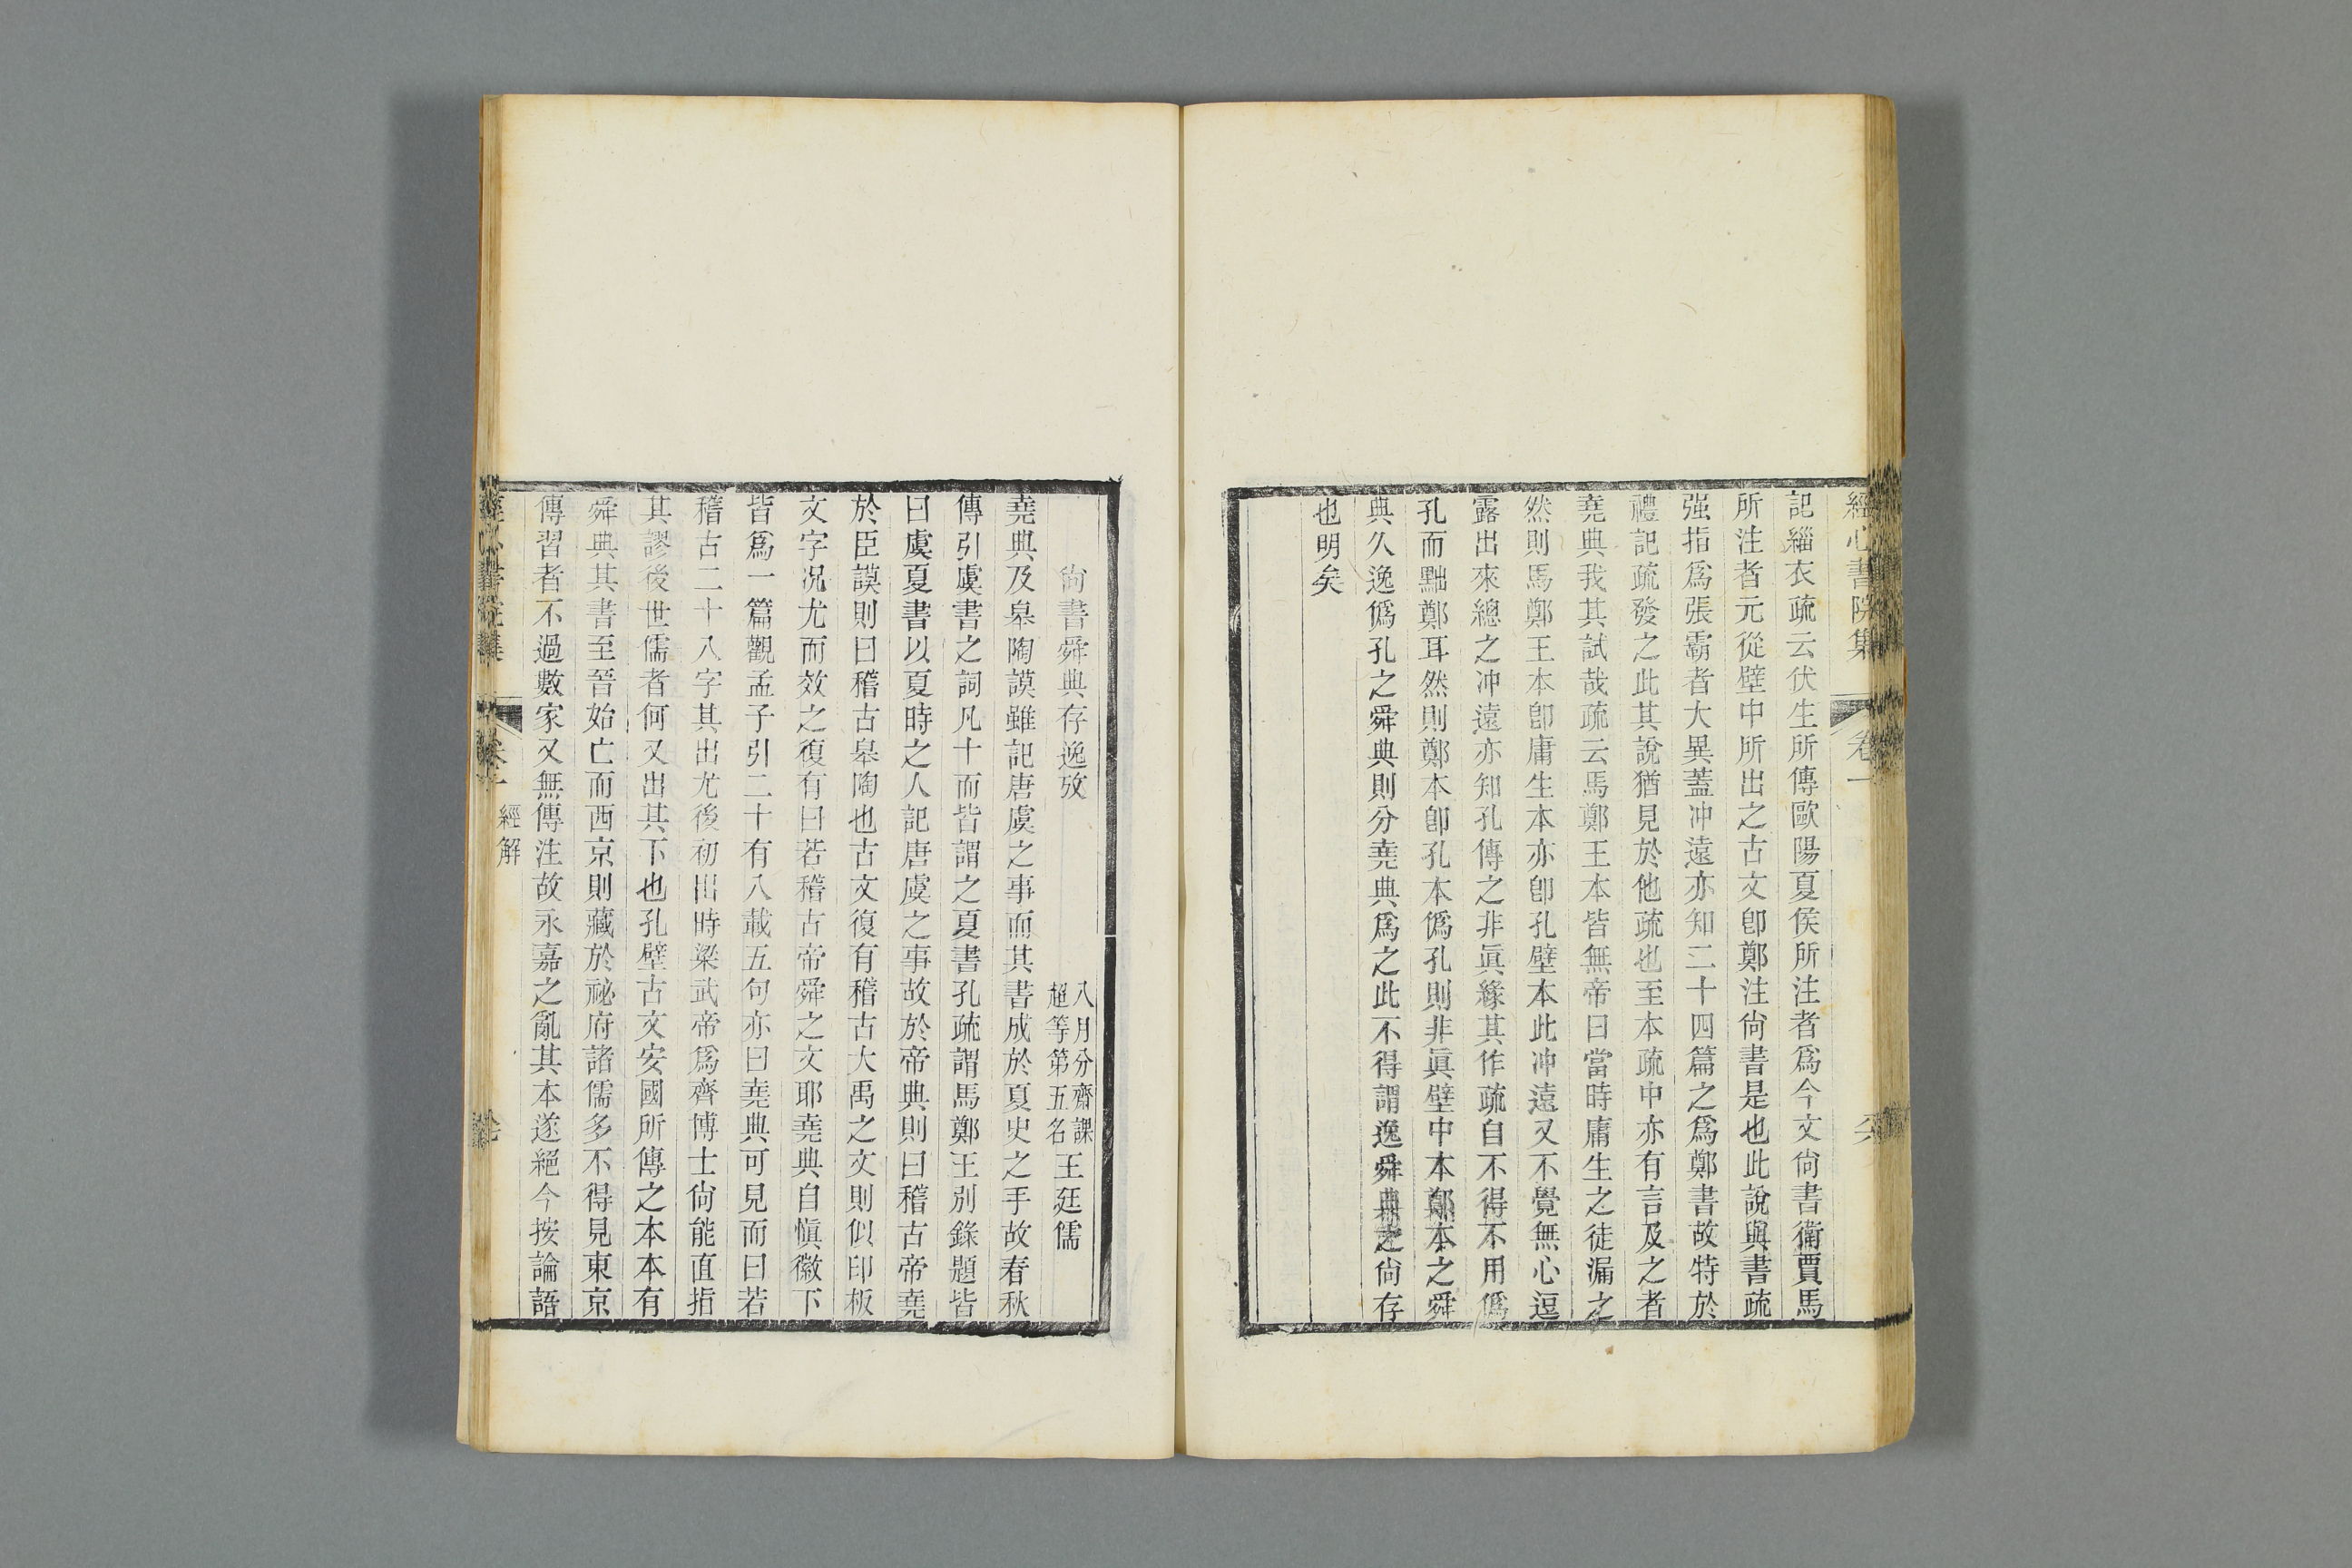 經心書院集 卷一
記緇衣疏云伏生所傳歐陽夏侯所注者爲今文尙書衞賈馬
所注者元從壁中所出之古文卽鄭注尙書是也此說與書疏
强指爲張霸者大異蓋冲遠亦知二十四篇之爲鄭書故特於
禮記疏發之此其說猶見於他疏也至本疏中亦有言及之者
堯典我其試哉疏云馬鄭王本皆無帝曰當時庸生之徒漏之
然則馬鄭王本卽庸生本亦卽孔壁本此冲遠又不覺無心逗
露出來總之冲遠亦知孔傳之非眞緣其作疏自不得不用僞
孔而黜鄭耳然則鄭本卽孔本僞孔則非眞壁中本鄭本之舜
典久逸僞孔之舜典則分堯典爲之此不得謂逸舜典之尙存
也明矣
尙書舜典存逸攷
八月分齋課
超等第五名
王廷儒
堯典及皋陶謨雖記唐虞之事而其書成於夏史之手故春秋
傳引虞書之詞凡十而皆謂之夏書孔疏謂馬鄭王別錄題皆
曰虞夏書以夏時之人記唐虞之事故於帝典則曰稽古帝堯
於臣謨則曰稽古皋陶也古文復有稽古大禹之文則似印板
文字况尤而效之復有曰若稽古帝舜之文耶堯典自愼徽下
皆爲一篇觀孟子引二十有八載五句亦曰堯典可見而曰若
稽古二十八字其出尤後初出時梁武帝爲齊博士尙能直指
其謬後世儒者何又出其下也孔壁古文安國所傳之本本有
舜典其書至晉始亡而西京則藏於祕府諸儒多不得見東京
傳習者不過數家又無傳注故永嘉之亂其本遂絕今按論語
經心書院集 卷一 經解